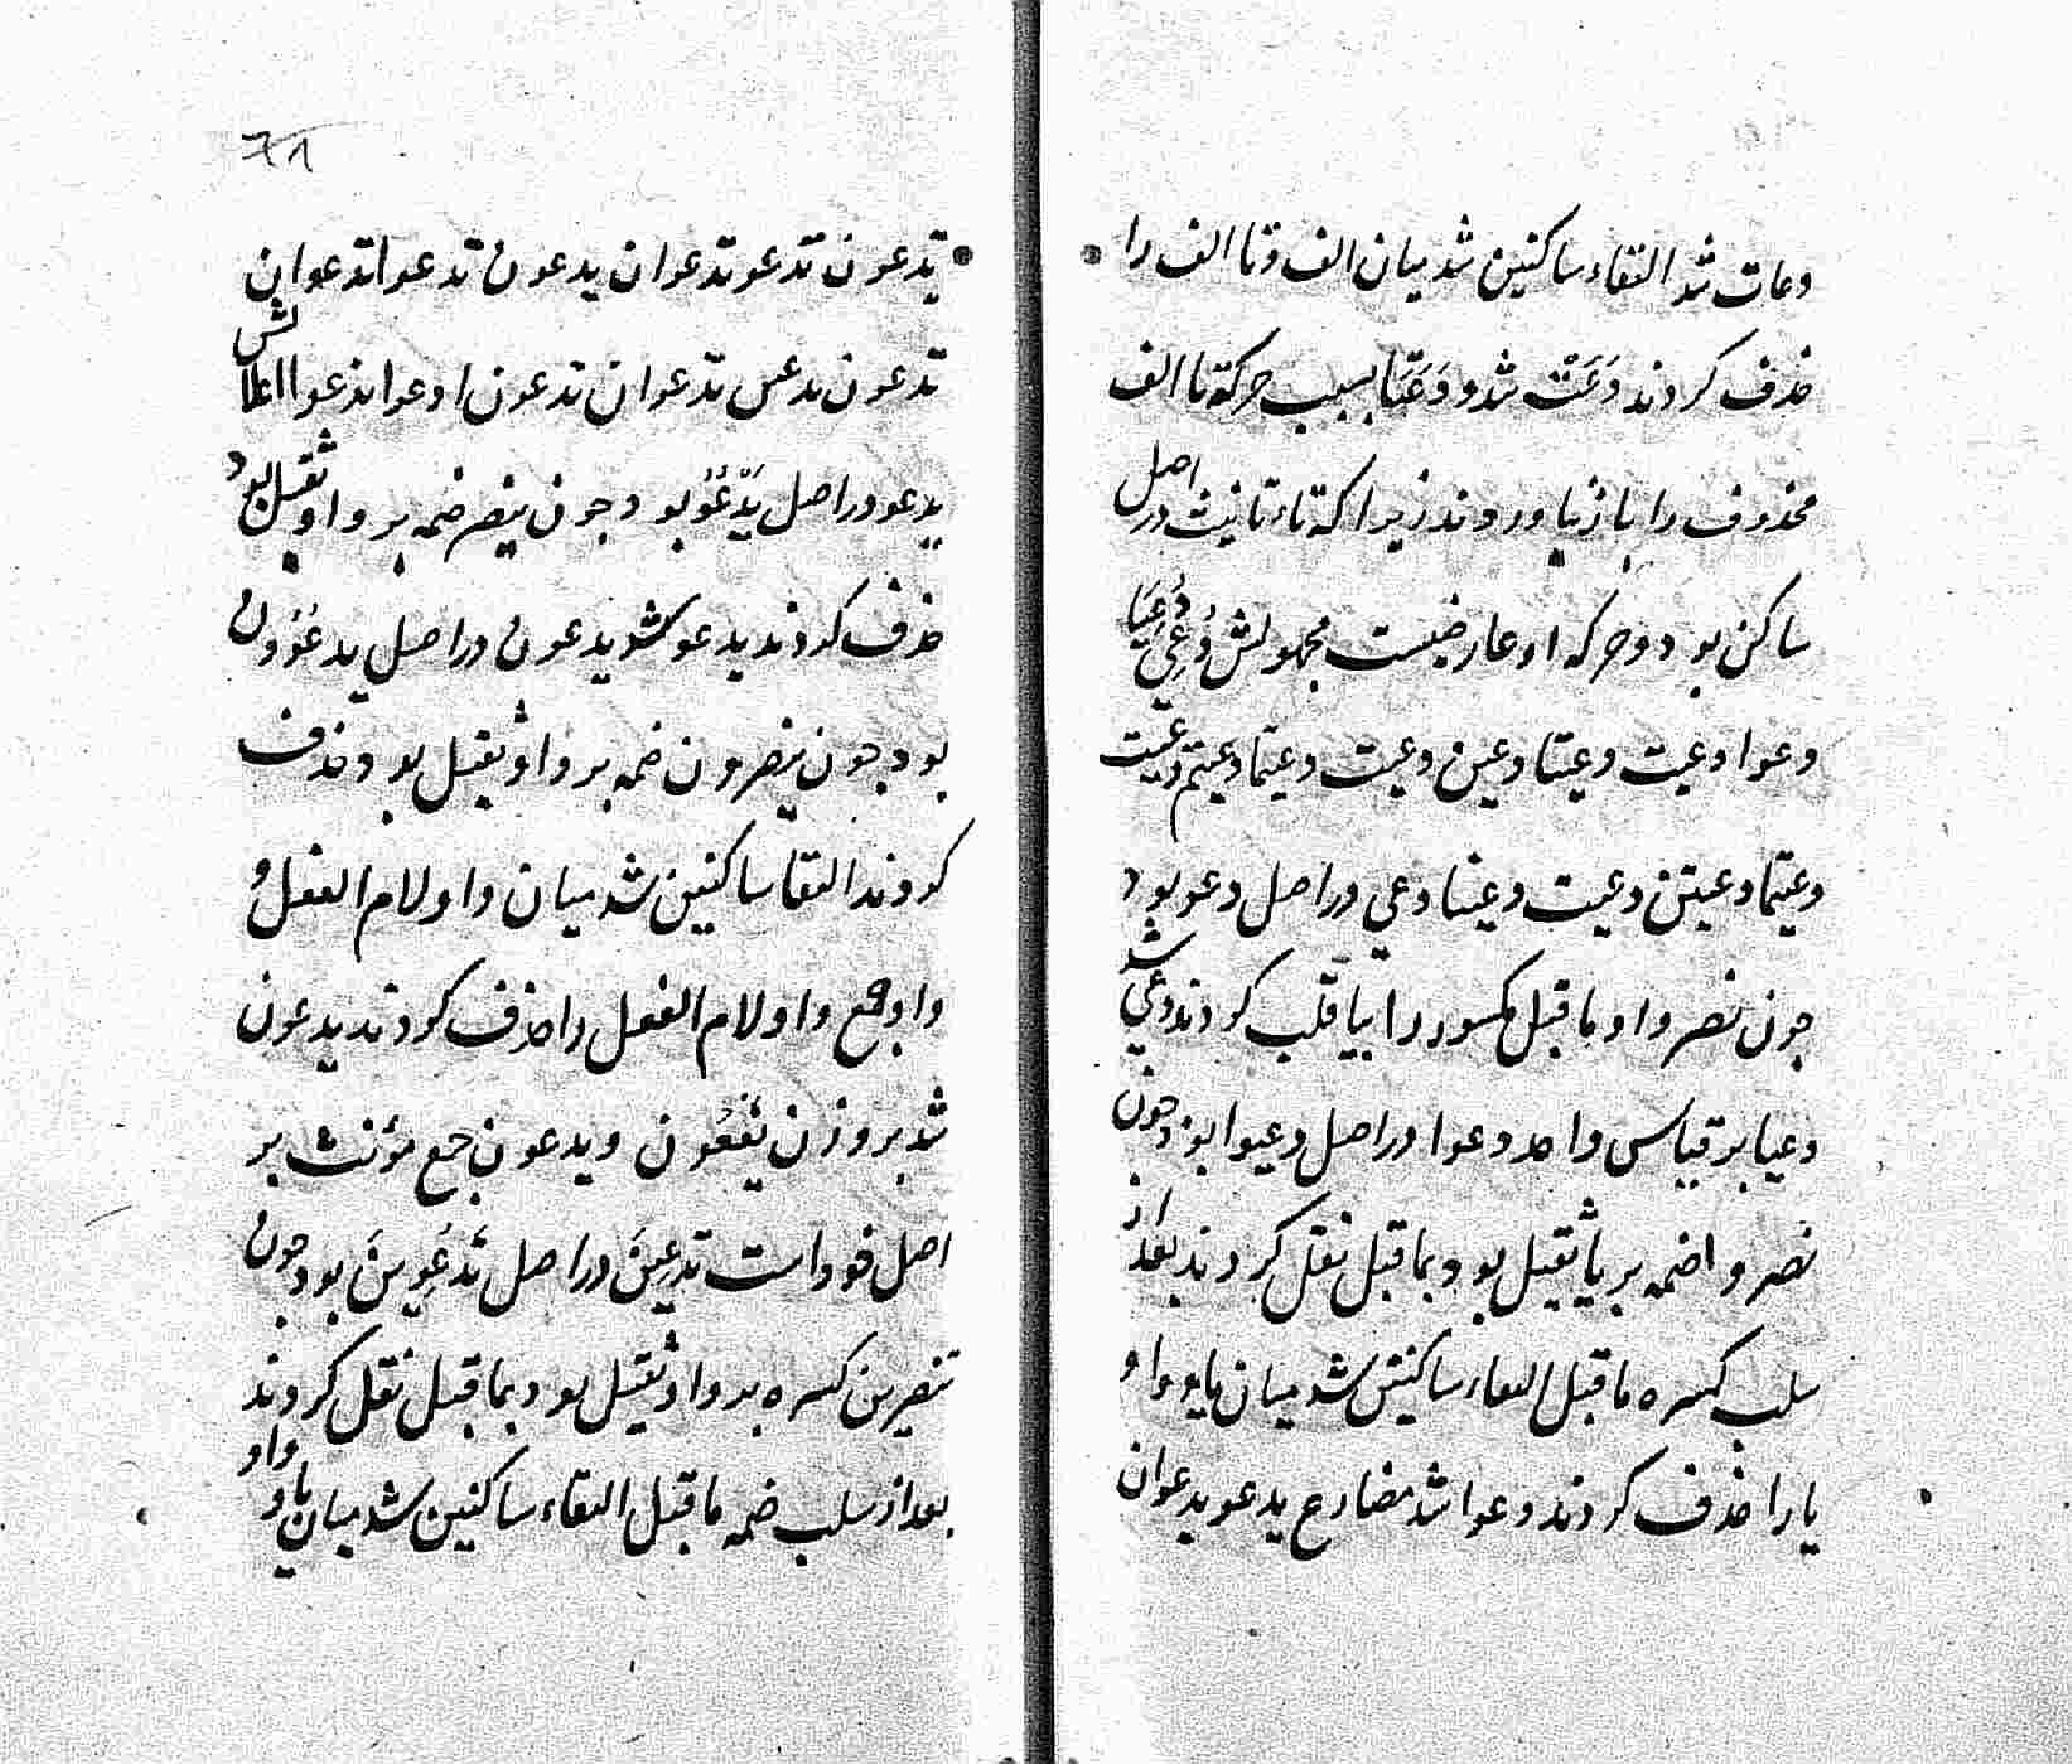 دعات شد التقاء ساکنین شد میان الف و تا الف را
حذف کردند دَعَتْ شد و دَعَتَا بسبب حرکة تا الف
محذوف را باز نیاوردند زیرا که تاء تانیث در اصل
ساکن بود و حرکه او عارضیست مجهولش دُعِیَ دُعِیَا
دعوا دعیت دعیتا دعین دعیت دعیتما دعیتم دعیت
دعیتما دعیتن دعیت دعینا دعی در اصل دعو بود
چون نصر واو ما قبل مکسور را بیا قلب کردند دعی شد
دعیا بر قیاس واحد دعوا در اصل دعیوا بود چون
نصروا ضمه بر یا ثقیل بود بما قبل نقل کردند بعد از
سلب کسره ما قبل التقاء ساکنین شد میان یا و واو
یا را حذف کردند دعوا شد مضارع یدعو یدعوان
یدعون تدعو تدعوان یدعون تدعوا تدعوان
تدعون تدعین تدعوان تدعون ادعوا ندعوا اعلالش
یدعو در اصل یَدْعُوُ بود چون ینصر ضمه بر واو ثقیل بود
حذف کردند یدعو شد یدعون در اصل یدعُوُون
بود چون ینصرون ضمه بر واو ثقیل بود حذف
کردند التقا ساکنین شد میان واو لام الفعل و
واو جمع واو لام الفعل را حذف کردند یدعون
شد بر وزن یَفْعُون و یدعون جمع مؤنث بر
اصل خود است تدعِینَ در اصل تَدْعُوِینَ بود چون
تنصرین کسره بر واو ثقیل بود بما قبل نقل کردند
بعد از سلب ضمه ما قبل التقاء ساکنین شد میان یا و واو